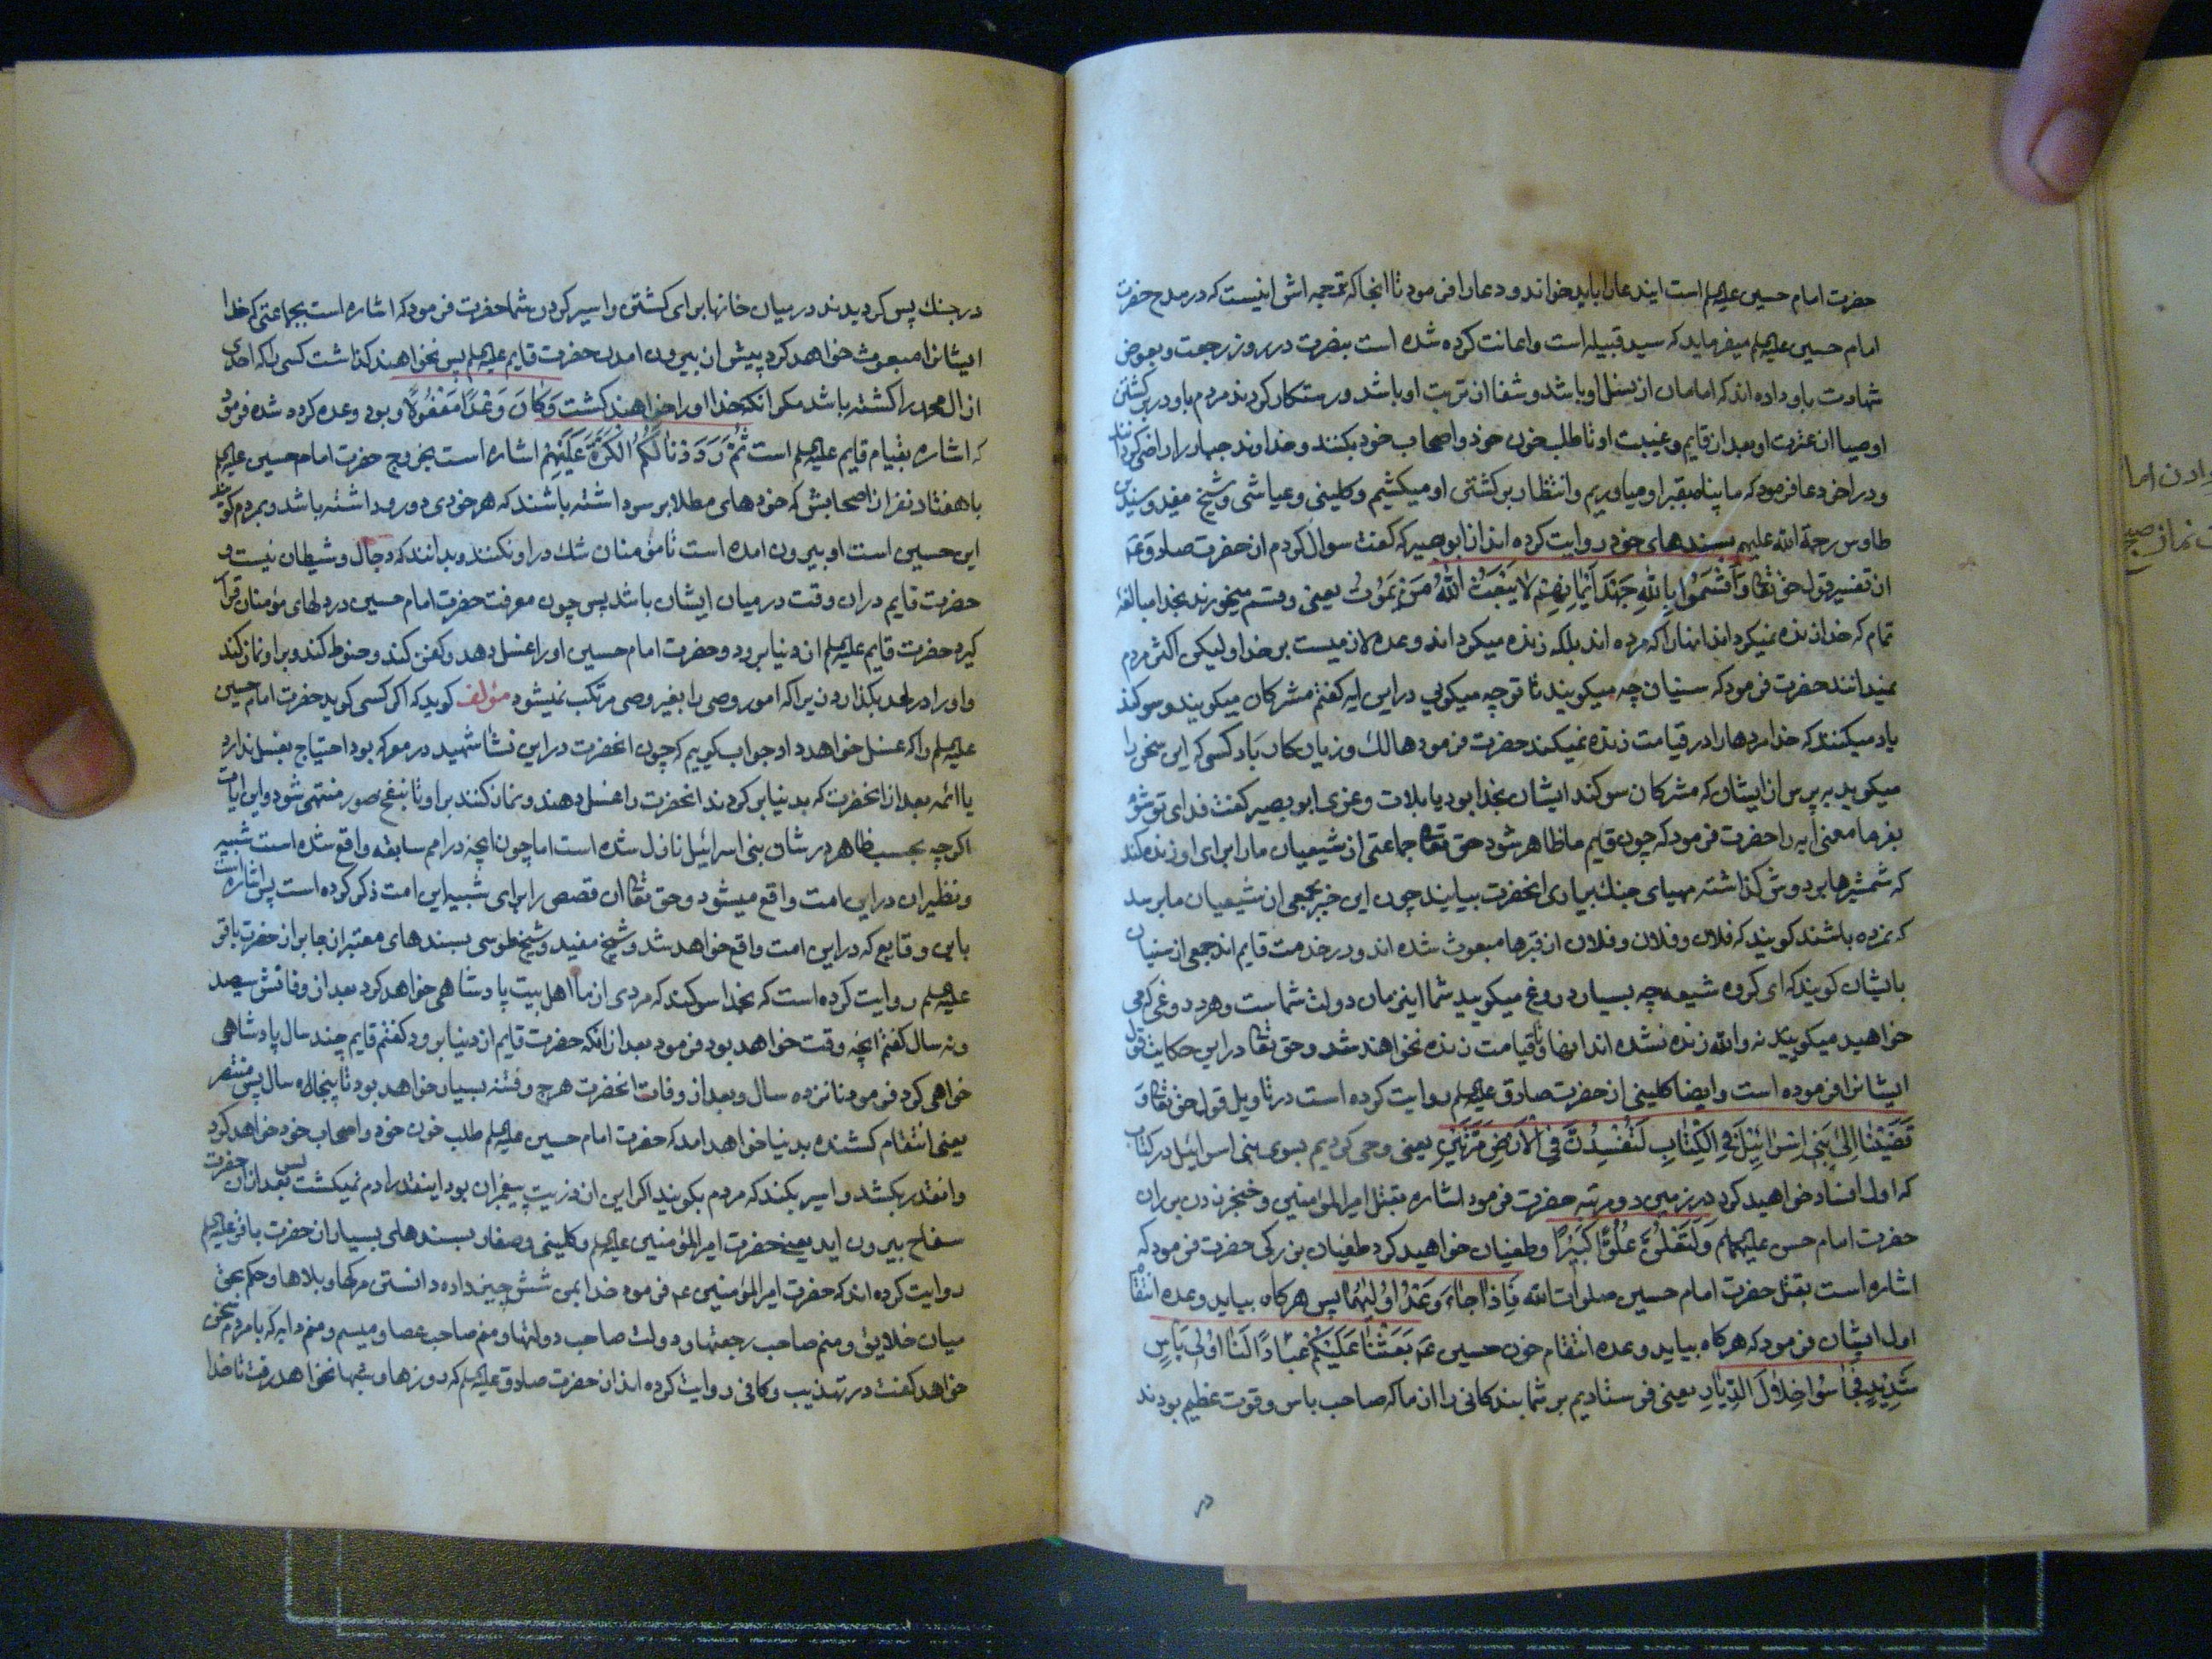 حضرت امام حسین علیه‌السلم است ایندعا را باید خواند و دعا را فرمود تا انجا که ترجمه اش اینست که در مدح حضرت
امام حسین علیه‌السلم میفرماید که سید قبیله است و اعانت کرده شده است بنصرت در روز رجعت و بعوض
شهادت باو داده اند که امامان از نسل او باشد و شفا از تربت او باشد و رستکار کردند مردم باو در برکشتن
اوصیا از عترت او بعد از قایم و غیبت او تا طلب خون خود و اصحاب خود بکنند و خداوند جبار را راضی کردانند
و در اخر دعا فرمود که ما پناه بقبر او میاوریم و انتظار برکشتن او میکشیم و کلینی و عیاشی و شیخ مفید و سید بن
طاوس رحمة الله علیهم بسندهای خود روایت کرده اند از ابو بصیر که کفت سوال کردم از حضرت صادق ع
از تفسیر قول حق تعالی وَاَقْسَمُوا بِاللّٰهِ جَهْدَ اَیْمَانِهِمْ لَا یَبْعَثُ اللّٰهُ مَنْ یَمُوتُ یعنی و قسم میخورند بخدا مبالغهٔ
تمام که خدا زنده نمیکرداند انها را که مرده اند بلکه زنده میکرداند و عده لازمیست بر خدا و لیکن اکثر مردم
نمیدانند حضرت فرمود که سنیان چه میکویند تا تو چه میکویی در این ایه کفتم مشرکان میکویند و سوکند
یاد میکنند که خدا مردها را در قیامت زنده نمیکند حضرت فرمود هالک و زیان کار باد کسی که این سخن را
میکوید بپرس از ایشان که مشرکان سوکند ایشان بخدا بود یا بلات و عزی ابو بصیر کفت فدای تو شوم
بفرما معنی ایه را حضرت فرمود که چون قایم ما ظاهر شود حق تعالی جماعتی از شیعیان ما را برای او زنده کند
که شمشیرها بر دوش کذاشته مهیای جنک بیاری انحضرت بیایند چون این خبر بجمعی از شیعیان ما برسد
که نمرده باشند کویند که فلان و فلان و فلان از قبرها مبعوث شده اند و در خدمت قایم اند جمعی از سنیان
بایشان کویند که ای کروه شیعه چه بسیار دروغ میکویید شما این زمان دولت شماست و هر دروغی که می
خواهید میکویید نه والله زنده نشده اند اینها و تا قیامت زنده نخواهند شد و حق تعالی در این حکایت قول
ایشانرا فرموده است و ایضا کلینی از حضرت صادق علیه‌السلم روایت کرده است در تاویل قول حق تعالی وَ
قَضَیْنَا اِلیٰ بَنِی اِسْرَائِیْلَ فِی الْکِتَابِ لَتُفْسِدُنَّ فِی الْاَرْضِ مَرَّتَیْنِ یعنی وحی کردیم بسوی بنی اسرائیل در کتاب
که اول افساد خواهید کرد در زمین دو مرتبه حضرت فرمود اشاره بقتل امیرالمؤمنین و خنجر زدن بر ران
حضرت امام حسن علیهماالسلم وَلَتَعْلُنَّ عُلُوًّا کَبِیْرًا و طغیان خواهید کرد طغیان بزرکی حضرت فرمود که
اشاره است بقتل حضرت امام حسین صلوات الله فَاِذَا جَاءَ وَعْدُ اُوْلَیٰهُمَا پس هرکاه بیاید وعده انتقام
اول ایشان فرمود که هرکاه بیاید وعده انتقام خون حسین ع بَعَثْنَا عَلَیْکُمْ عِبَادًا لَنَا اُولِی بَاْسٍ
شَدِیْدٍ فَجَاسُوا خِلَالَ الدِّیَارِ یعنی فرستادیم بر شما بندکانی را از ما که صاحب باس و قوت عظیم بودند
در
در جنک پس کردیدند در میان خانها برای کشتن و اسیر کردن شما حضرت فرمود که اشاره است بجماعتی که خدا
ایشانرا مبعوث خواهد کرد پیش از بیرون امدن حضرت قایم علیه‌السلم پس نخواهند کذاشت کسی را که احدی
از ال محمد را کشته باشد مکر انکه خدا او را خواهند کشت وَکَانَ وَعْدًا مَفْعُولًا و بود وعده کرده شده فرمود
که اشاره بقیام قایم علیه‌السلم است ثُمَّ رَدَدْنَا لَکُمُ الْکَرَّةَ عَلَیْهِمْ اشاره است بخروج حضرت امام حسین علیه‌السلم
با هفتاد نفر از اصحابش که خودهای مطلا بر سر داشته باشند که هر خودی دو رو داشته باشد و بمردم کویند
این حسین است او بیرون امده است تا مؤمنان شک در او نکنند و بدانند که دجال و شیطان نیست و
حضرت قایم در ان وقت در میان ایشان باشد پس چون معرفت حضرت امام حسین در دلهای مؤمنان قرار
کیرد حضرت قایم علیه‌السلم از دنیا برود و حضرت امام حسین او را غسل دهد و کفن کند و حنوط کند و بر او نماز کند
و او را در لحد بکذارد زیرا که امور وصی را بغیر وصی مرتکب نمیشود مؤلف کوید که اکر کسی کوید حضرت امام حسین
علیه‌السلم را که غسل خواهد داد جواب کوییم که چون انحضرت در این نشأ شهید در معرکه بود احتیاج بغسل ندارد
یا ائمه بعد از انحضرت که بدنیا برکردند انحضرت را غسل دهند و نماز کنند بر او تا بنفخ صور منتهی شود و این ایات
اکرچه بحسب ظاهر در شان بنی اسرائیل نازل شده است اما چون انچه در امم سابقه واقع شده است شبیه
و نظیر ان در این امت واقع میشود و حق تعالی ان قصص را برای شبیه این امت ذکر کرده است پس اشاره است
باین وقایع که در این امت واقع خواهد شد و شیخ مفید و شیخ طوسی بسندهای معتبر از جابر از حضرت باقر
علیه‌السلم روایت کرده است که بخدا سوکند که مردی از ما اهل بیت پادشاهی خواهد کرد بعد از وفاتش سیصد
و نه سال کفتم انچه وقت خواهد بود فرمود بعد از انکه حضرت قایم از دنیا برود کفتم قایم چند سال پادشاهی
خواهی کرد فرمود نانزده سال و بعد از وفات انحضرت هرج و فتنه بسیار خواهد بود تا پنجاه سال پس منتصر
یعنی انتقام کشنده بدنیا خواهد امد که حضرت امام حسین علیه‌السلم طلب خون خود و اصحاب خود خواهد کرد
و انقدر بکشد و اسیر بکند که مردم بکویند اکر این از ذریت پیغمبران بود اینقدر ادم نمیکشت پس بعد از ان حضرت
سفاح بیرون اید یعنی حضرت امیرالمؤمنین علیه‌السلم و کلینی و صفار بسندهای بسیار از حضرت باقر علیه‌السلم
روایت کرده اند که حضرت امیرالمؤمنین ع فرمود خدا بمن شش چیز داده دانستن مرکها و بلاها و حکم بحق
میان خلایق و منم صاحب رجعتها و دولت صاحب دولتها و منم صاحب عصا و میسم و منم دابه که با مردم سخن
خواهد کفت در تهذیب و کافی روایت کرده اند از حضرت صادق علیه‌السلم که روزها و شبها نخواهد رفت تا خدا